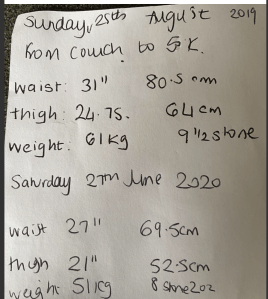 Sunday, 25th August 2019
from couch to 5K.
waist: 31" 80.5 cm
thigh: 24.75. 64cm
weight: 61kg 9 1/2 stone
Saturday 27th June 2020
waist 27" 69.5cm
thigh 21" 52.5cm
weight 51kg 8 stone 2oz